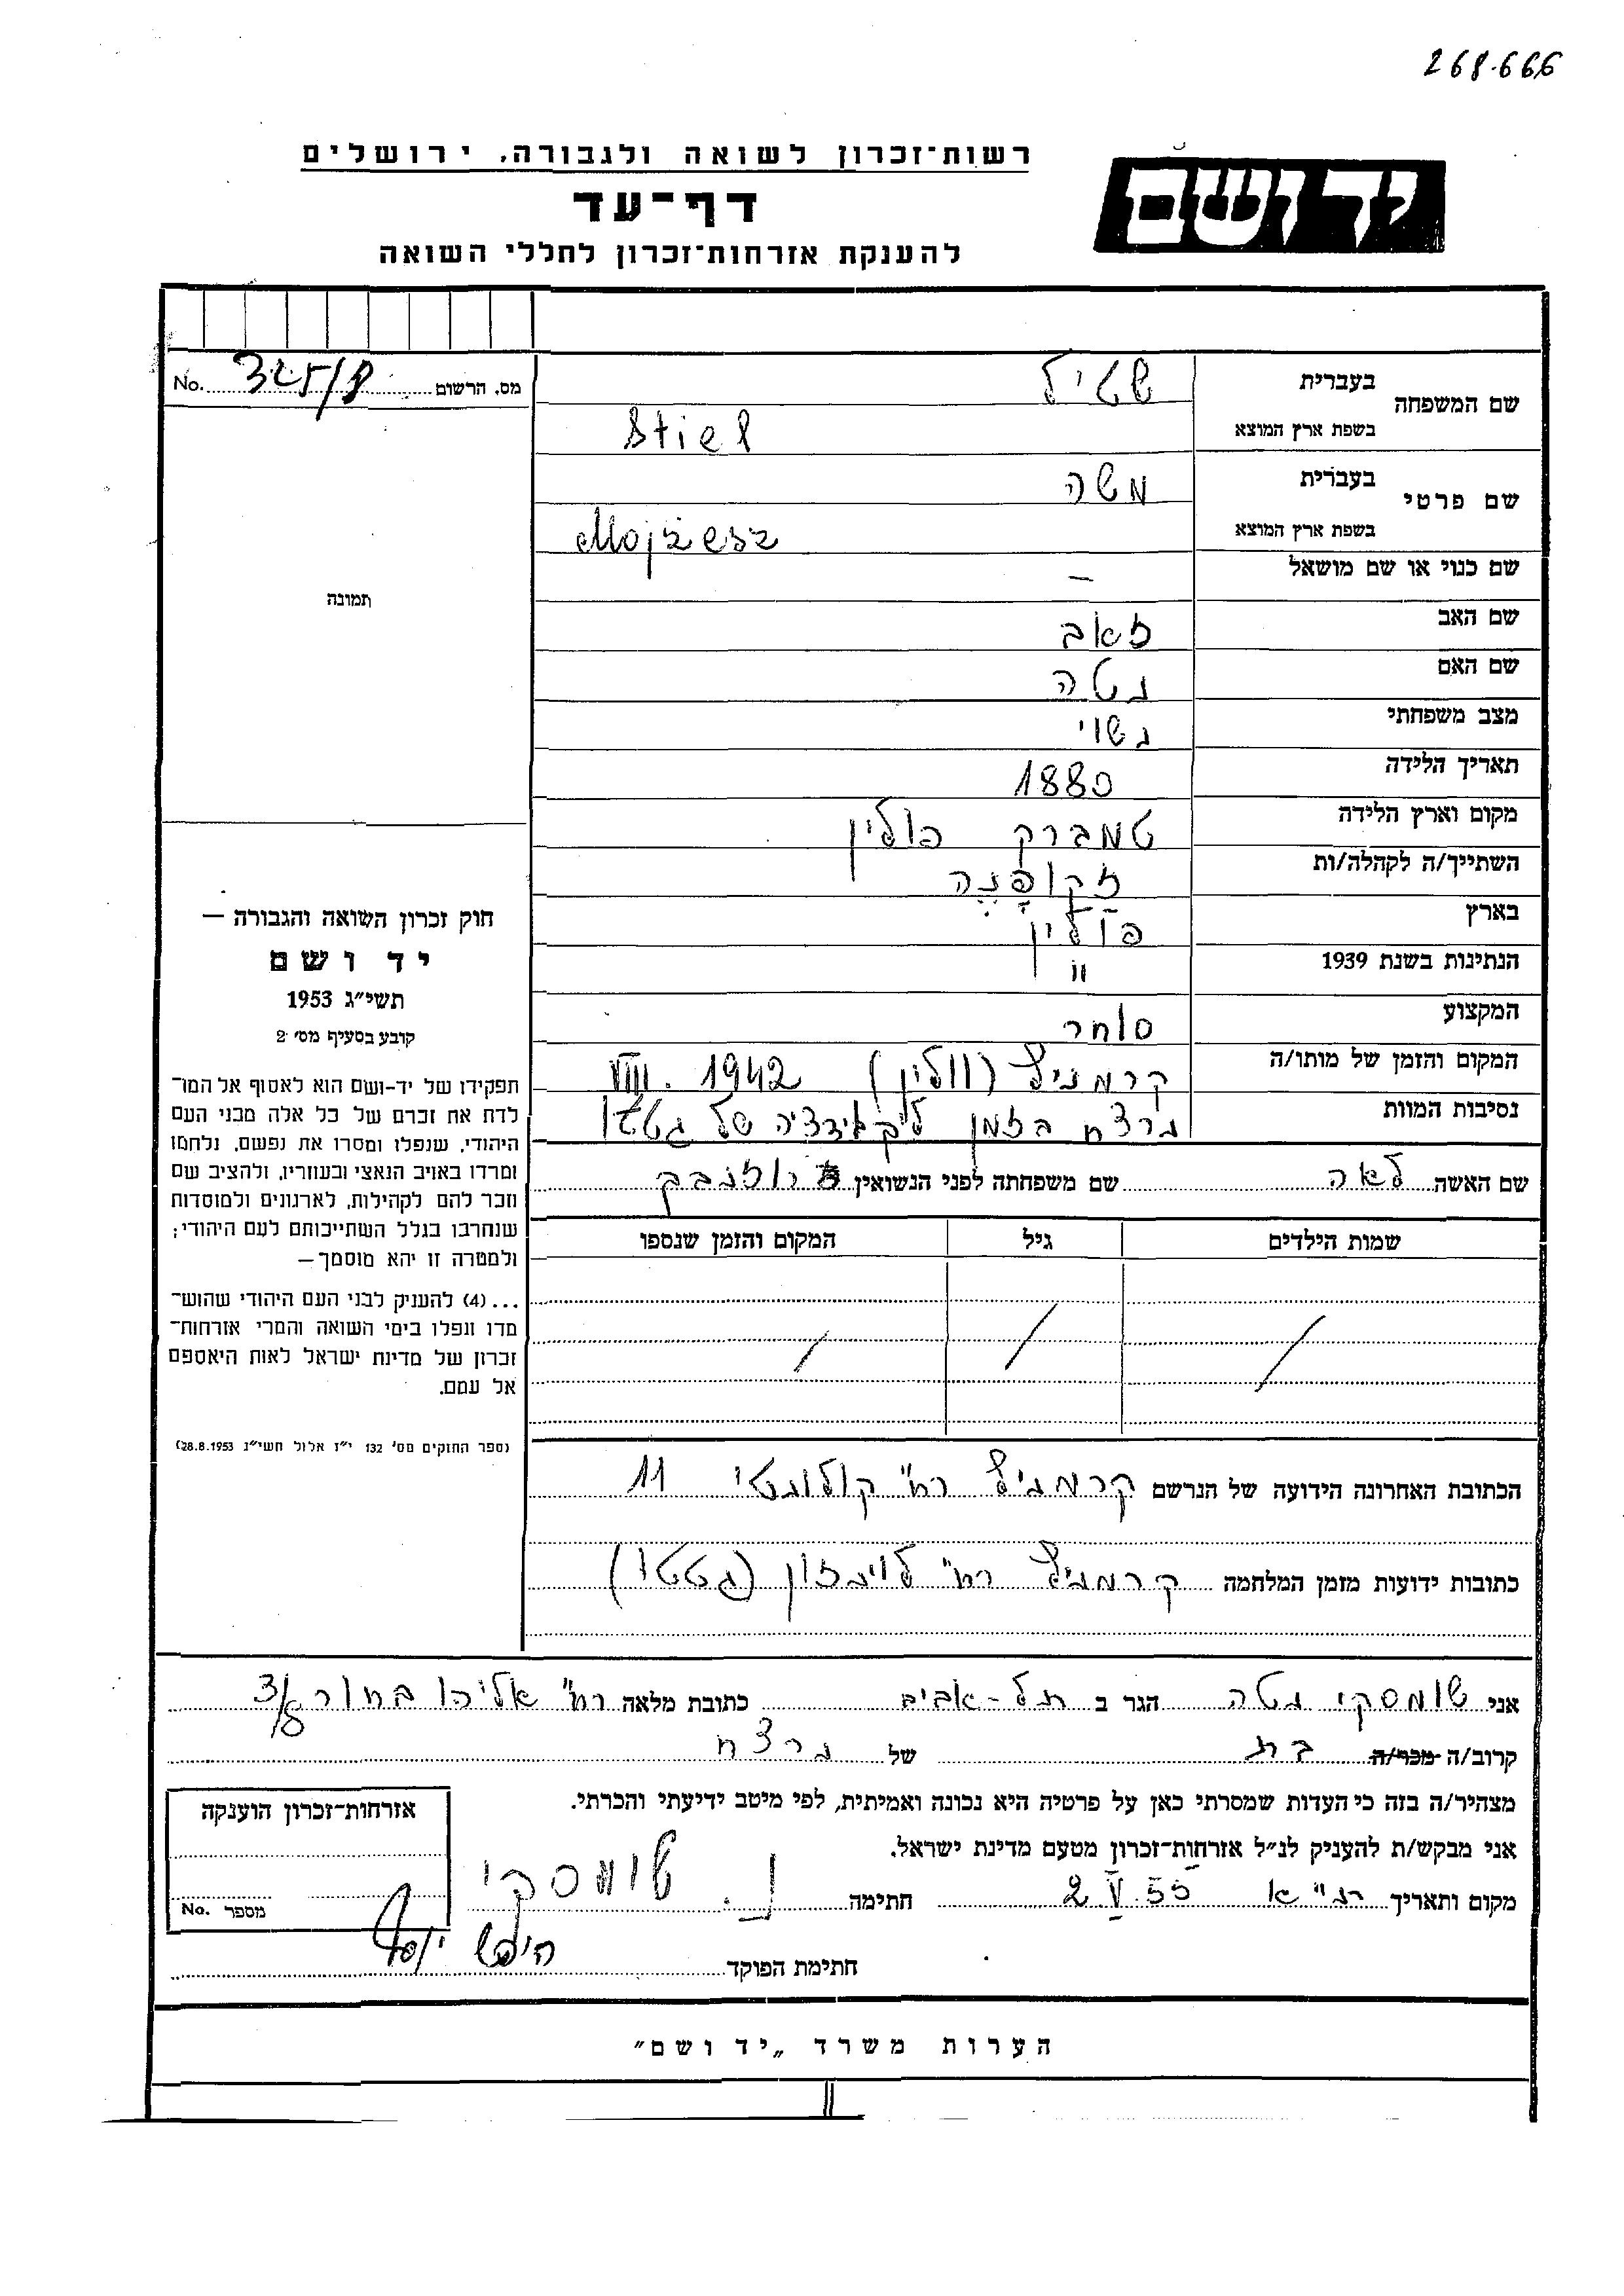 268.666
רשות־זכרון לשואה ולגבורה, ירושלים
יד ושם
דף־עד
להענקת אזרחות־זכרון לחללי השואה
מס. הרשום No. 325/
שם המשפחה בעברית שטיל
בשפת ארץ המוצא Stiel
שם פרטי בעברית משה
בשפת ארץ המוצא Mojżesz
שם כנוי או שם מושאל –
שם האב זאב
שם האם נטה
מצב משפחתי נשוי
תאריך הלידה 1880
מקום וארץ הלידה טמברק פולין
השתייך/ה לקהלה/ות זקופנה
בארץ פולין
הנתינות בשנת 1939 "
המקצוע סוחר
המקום והזמן של מותו/ה קרמניץ (וולין) VIII. 1942
נסיבות המוות נרצח בזמן ליקוידציה של גטטו
שם האשה לאה שם משפחתה לפני הנשואין
שמות הילדים גיל המקום והזמן שנספו
הכתובת האחרונה הידועה של הנרשם קרמניץ רח' 11
כתובות ידועות מזמן המלחמה קרמניץ רח' לוינזון (גטטו)
תמונה
חוק זכרון השואה והגבורה —
יד ושם
תשי״ג 1953
קובע בסעיף מס׳ 2
תפקידו של יד-ושם הוא לאסוף אל המו־
לדת את זכרם של כל אלה מבני העם
היהודי, שנפלו ומסרו את נפשם, נלחמו
ומרדו באויב הנאצי ובעוזריו, ולהציב שם
וזכר להם לקהילות, לארגונים ולמוסדות
שנחרבו בגלל השתייכותם לעם היהודי;
ולמטרה זו יהא מוסמך —
...(4) להעניק לבני העם היהודי שהוש־
מדו ונפלו בימי השואה והמרי אזרחות־
זכרון של מדינת ישראל לאות היאספם
אל עמם.
(ספר החוקים מס׳ 132 י״ז אלול תשי״ג 28.8.1953)
אני שומסקי נטה הגר ב תל-אביב כתובת מלאה רח' אליהו בחור
קרוב/ה מכר/ה בת של נרצח
מצהיר/ה בזה כי העדות שמסרתי כאן על פרטיה היא נכונה ואמיתית, לפי מיטב ידיעתי והכרתי.
אני מבקש/ת להעניק לנ״ל אזרחות־זכרון מטעם מדינת ישראל.
מקום ותאריך ת"א 2.V.55 חתימה נ. שומסקי
חתימת הפוקד
אזרחות־זכרון הוענקה
מספר No.
הערות משרד „יד ושם״